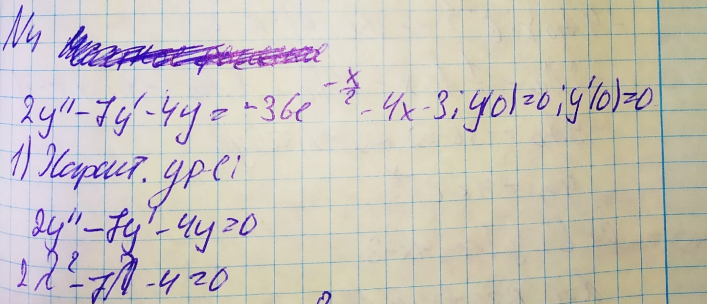 №4
2y'' - 7y' - 4y = -36e^{-x/2} - 4x - 3; y(0)=0; y'(0)=0
1) Характ. ур-е:
2y'' - 7y' - 4y = 0
2λ² - 7λ - 4 = 0